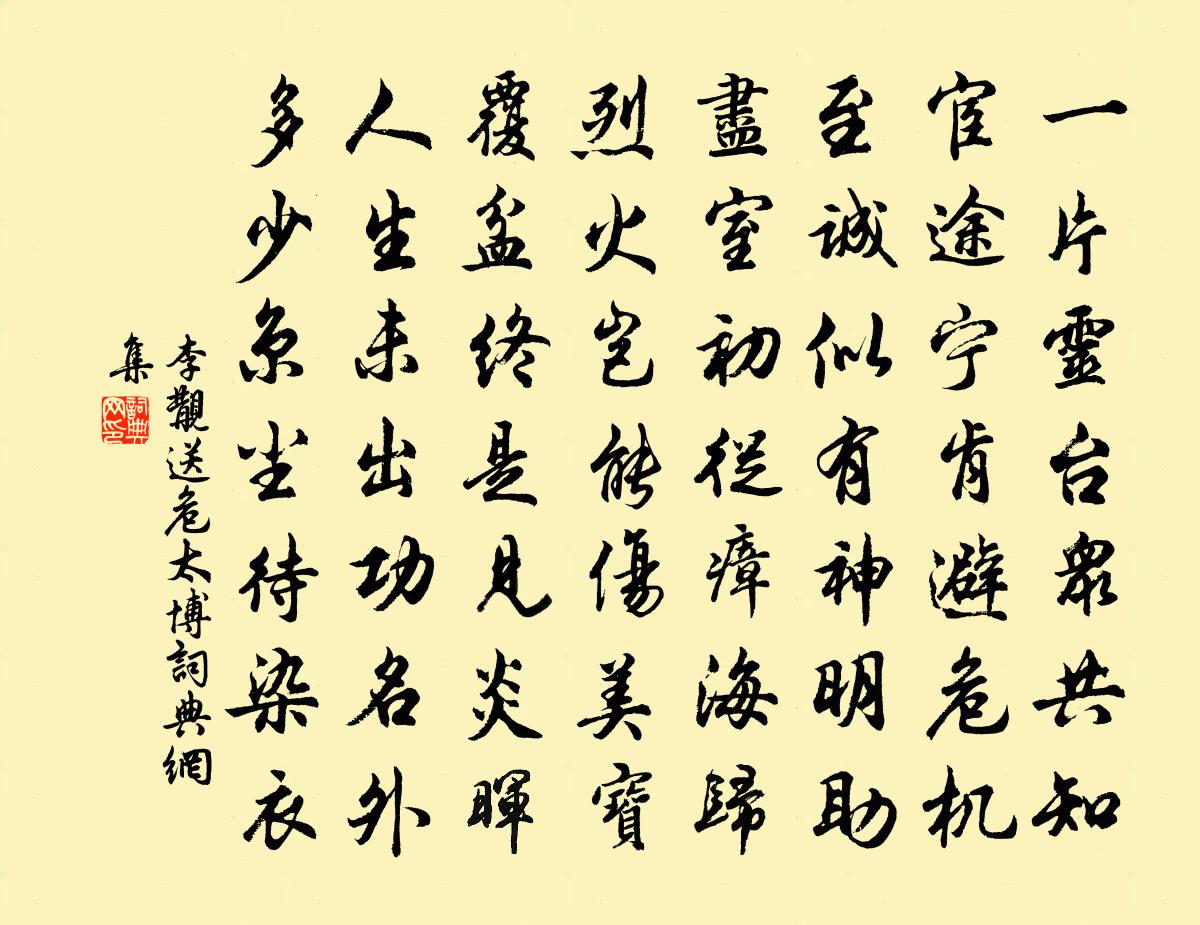 一片靈台眾共知
宦途宁肯避危机
至誠似有神明助
盡室初從瘴海歸
烈火岂能傷美寶
覆盆終是見炎暉
人生未出功名外
多少京尘待染衣
李覯送危太博詞典網
集
詞典
网印